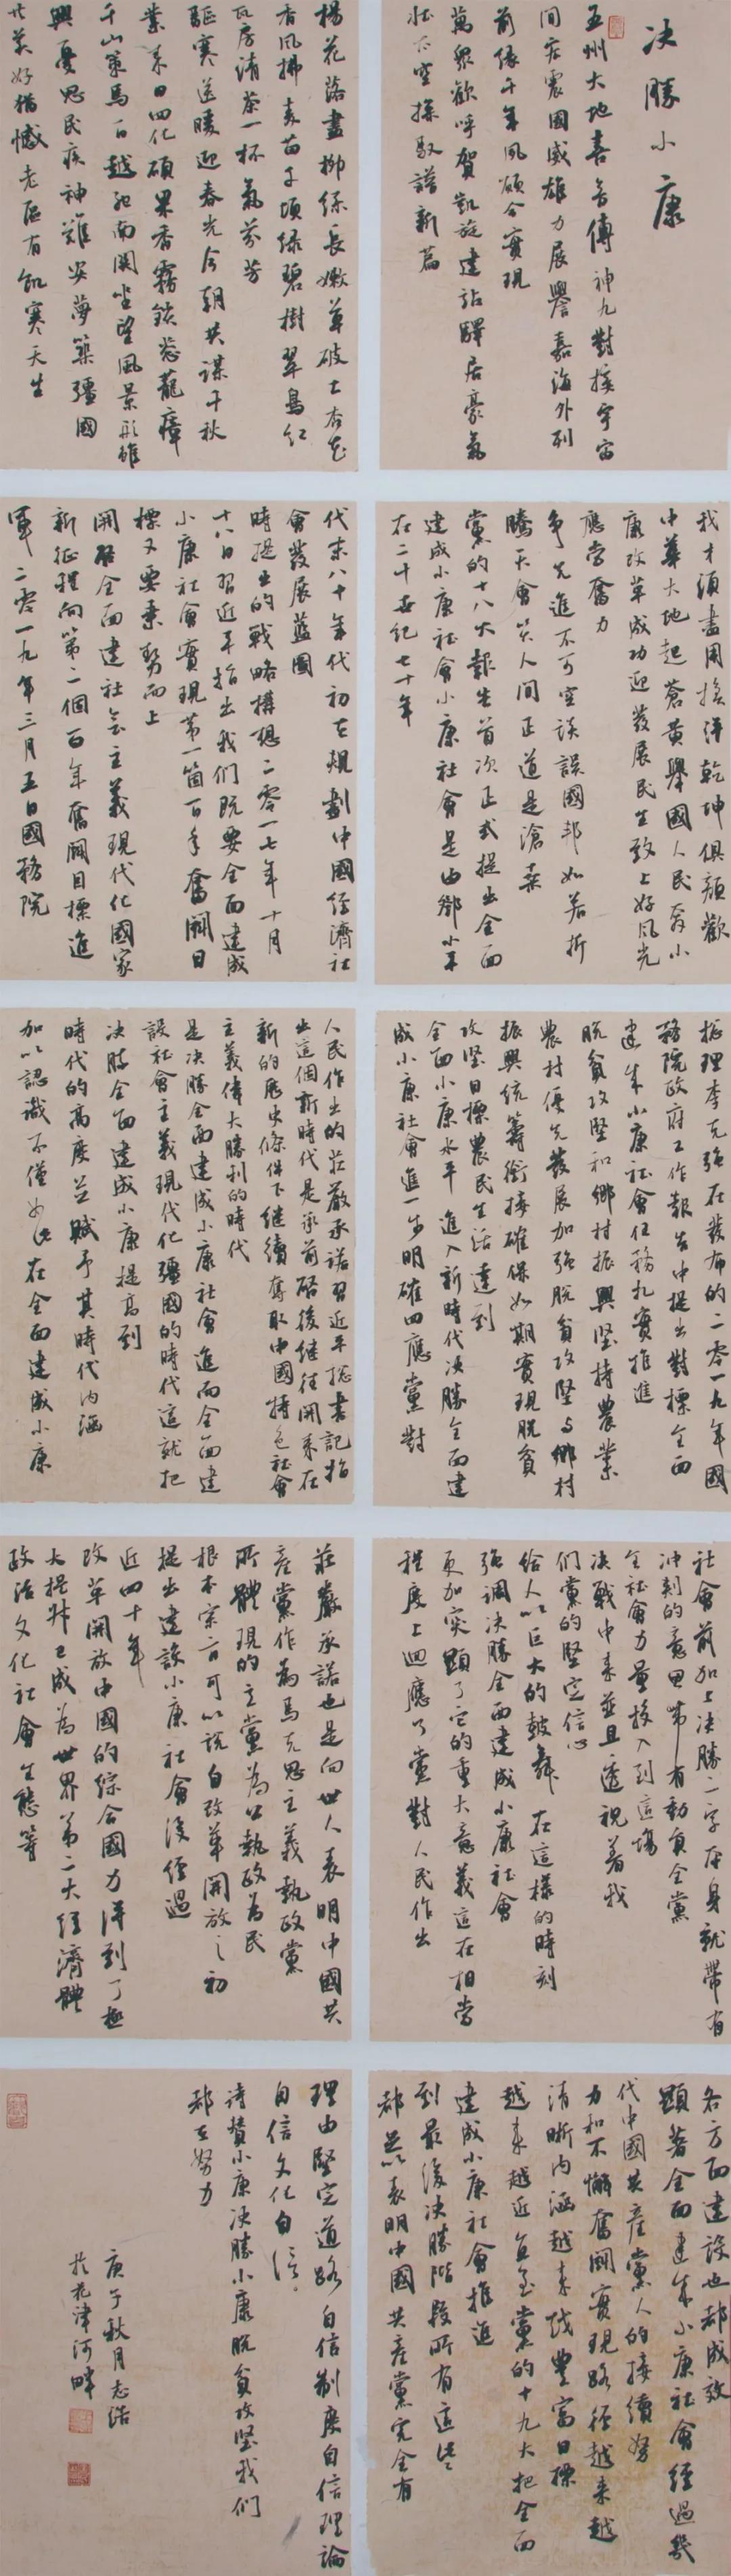 決勝小康
五州大地喜嘉傳神九對接宇宙
間宏震國威雄力展譽嘉海外利
前緣千年夙願今實現
萬眾歡呼賀凱旋建站驛居豪氣
壯太空操馭譜新篇
楊花落盡柳絲長嫩草破土杏花
香風拂麥苗千頃綠碧樹翠鳥紅
瓦房清茶一杯氣芬芳
驅寒送暖迎春光今朝共謀千秋
業來日四化碩果香霧鎖蒼蘢瘴
千山策馬百越
興憂思民疾神難安夢築疆國
老區有飢寒天生
我才須盡用換得乾坤俱顏歡
中華大地起蒼黃舉國人民奔小
康改革成功迎發展民生致上好風光
應當奮力
爭先進不可空談誤國邦如若折
騰天會笑人間正道是滄桑
黨的十八大報告首次正式提出全面
建成小康社會小康社會是由鄧小平
在二十世紀七十年
代末八十年代初在規劃中國經濟社
會發展藍圖
時提出的戰略構想二零一七年十月
十八日習近平指出我们既要全面建成
小康社會實現第一箇百年奮鬭目
標又要乘勢而上
開啓全面建社会主義現代化國家
新征程向第二個百年奮鬭目標進
軍二零一九年三月五日國務院
總理李克強在發布的二零一九年國
務院政府工作報告中提出對標全面
建成小康社會任務扎實推進
脫貧攻堅和鄉村振興堅持農業
農村優先發展加強脫貧攻堅与鄉村
振興統籌銜接確保如期實現脫貧
攻堅目標農民生活達到
全面小康水平進入新時代決勝全面建
成小康社會進一步明確回應黨對
人民作出的莊嚴承諾習近平總書記指
出這個新時代是承前啓後繼往開來在
新的歷史條件下繼續奪取中國特色社會
主義偉大勝利的時代
是決勝全面建成小康社會進而全面建
設社會主義現代化彊國的時代這就把
決勝全面建成小康提高到
時代的高度並賦予其時代内涵
加以認識不僅如此在全面建成小康
社會前加上決勝二字本身就帶有
冲刺的意思帶有動員全黨
全社會力量投入到這場
決戰中來並且透視着我
們黨的堅定信心
給人以巨大的鼓舞在這樣的時刻
強調決勝全面建成小康社會
更加突顯了它的重大意義這在相當
程度上回應了黨對人民作出
莊嚴承諾也是向世人表明中國共
產黨作為馬克思主義執政黨
所體現的立黨為公執政為民
根本宗旨可以說自改革開放之初
提出建設小康社會後經過
近四十年
改革開放中國的綜合國力得到了極
大提升已成為世界第二大經濟體
政治文化社會生態等
各方面建設也都成效
顯著全面建成小康社會經過幾
代中國共產黨人的接續努
力和不懈奮鬭實現路徑越來越
清晰内涵越来越豐富目標
越來越近直至黨的十九大把全面
建成小康社會推進
到最後決勝階段所有這些
都足以表明中國共產黨完全有
理由堅定道路自信制度自信理論
自信文化自信
詩贊小康決勝小康脫貧攻堅我們
都在努力
庚子秋月志浩
於花津河畔